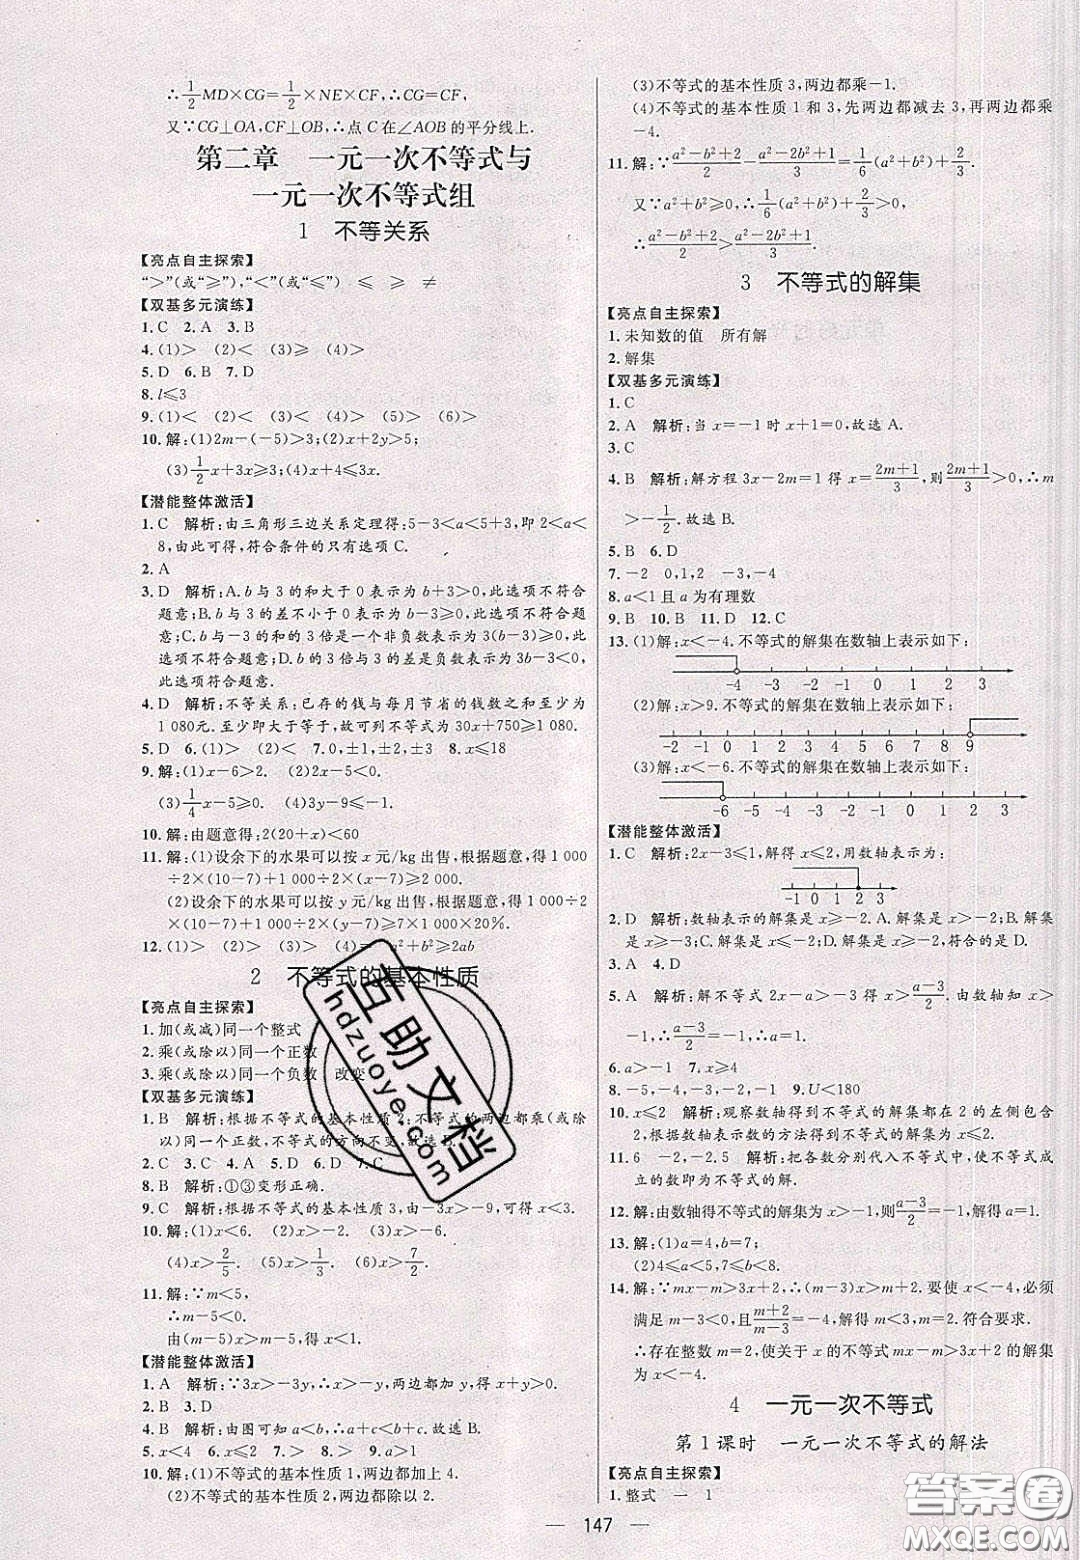 ∴1/2MD×CG=1/2×NE×CF,∴CG=CF.
又∵CG⊥OA,CF⊥OB,∴点C在∠AOB的平分线上.
第二章 一元一次不等式与
一元一次不等式组
1 不等关系
【亮点自主探索】
“>”(或“≥”),“<”(或“≤”) ≤ ≥ ≠
【双基多元演练】
1.C 2.A 3.B
4.(1)> (2)< (3)≥ (4)>
5.D 6.B 7.D
8.l≤3
9.(1)< (2)< (3)> (4)< (5)< (6)>
10.解:(1)2m-(-5)>3;(2)x+2y>5;
(3)1/2x+x≥3;(4)3x+4≤5.
【潜能整体激活】
1.C 解析:由三角形三边关系定理得:5-3<a<5+3,即2<a<
8,由此可得,符合条件的只有选项C.
2.A
3.D 解析:A.b与3的和大于0表示为b+3>0,此选项不符合
题意;B.b与3的差不小于0表示为b-3≥0,此选项不符合
题意;C.b与-3的和的3倍是一个非负数表示为3(b-3)≥0,此
选项不符合题意;D.b的3倍与3的差是负数表示为3b-3<0,
此选项符合题意.
4.D 解析:不等关系:已存的钱与每月节省的钱数之和至少为
1 080元.至少即大于等于,故可列不等式为30x+750≥1 080.
5.D 6.(1)> (2)< 7.0,±1,±2 8.x≤18
9.解:(1)x-6>2. (2)2x+5<0.
(3)1/4x-5≥0. (4)3y-9≤-1.
10.解:由题意得:2(20+x)<60
11.解:(1)设余下的水果可以按x元/kg出售,根据题意,得1 000
÷2×(10-7)+1 000÷2×(x-7)≥2 000.
(2)设余下的水果可以按y元/kg出售,根据题意,得1 000÷2
×(10-7)+1 000÷2×(y-7)≥7×1 000×20%.
12.(1)> (2)> (3)> (4)= a²+b²≥2ab
2 不等式的基本性质
【亮点自主探索】
1.加(或减)同一个整式
2.乘(或除以)同一个正数
3.乘(或除以)同一个负数 改变
【双基多元演练】
1.B 解析:根据不等式的基本性质2:不等式的两边都乘(或除
以)同一个正数,不等号的方向不变,故选B.
2.C 3.C 4.A 5.D 6.D 7.C
8.B 解析:①③变形正确.
9.C 解析:根据不等式的基本性质3,由-3x>-9,可得x<3.
10.解:(1)x<6. (2)x>1. (3)x>-6.
(4)x>2/5. (5)x>1/3. (6)x>7/2.
11.解:∵m<5,
∴m-5<0.
由(m-5)x>m-5,得x<1.
【潜能整体激活】
1.A 解析:∵3x>-3y,∴x>-y,两边都加y,得x+y>0.
2.B 3.D
4.B 解析:由图可知a<b<0,c>0,∴a+c<b+c.
5.x<4 6.x>2 7.> 8.> 9.<
10.解:(1)不等式的基本性质1,两边都加上4.
(2)不等式的基本性质2,两边都除以2.
(3)不等式的基本性质3,两边都乘-1.
(4)不等式的基本性质1和3,先两边都减去3,再两边都乘
-4.
11.解:∵(a²-b²+2)/2-(a²-2b²+1)/3=1/6(a²+b²)+2/3,
又∵a²+b²≥0,∴1/6(a²+b²)+2/3>0,
∴(a²-b²+2)/2>(a²-2b²+1)/3.
3 不等式的解集
【亮点自主探索】
1.未知数的值 所有解
2.解集
【双基多元演练】
1.C
2.A 解析:当x=-1时x+1=0,故选A.
3.C
4.B 解析:解方程3x-2m=1得x=(2m+1)/3,则(2m+1)/3>0,∴m
>-1/2.故选B.
5.B 6.D
7.-2 0,1,2 -3,-4
8.a<1且a为有理数
9.B 10.B 11.D 12.C
13.(1)解:x<-4.不等式的解集在数轴上表示如下:
-4 -3 -2 -1 0 1 2 3
(2)解:x>9.不等式的解集在数轴上表示如下:
-2 -1 0 1 2 3 4 5 6 7 8 9
(3)解:x<-6.不等式的解集在数轴上表示如下:
-6 -5 -4 -3 -2 -1 0 1 2 3
【潜能整体激活】
1.C 解析:2x-3≤1,解得x≤2,用数轴表示为:
-1 0 1 2 3
2.D 解析:数轴表示的解集是x≥-2.A.解集x>-2;B.解集
是x>-3;C.解集是x≤-2;D.解集是x≥-2.符合的是D.
3.A 4.D
5.A 解析:解不等式2x-a>-3得x>(a-3)/2.由数轴知x>
-1,∴(a-3)/2=-1,∴a=1.
6.a>-1 7.x≥4
8.-5,-4,-3,-2,-1 9.U<180
10.x≤2 解析:观察数轴得到不等式的解集都在2的左侧包含
2,根据数轴表示数的方法得到不等式的解集为x≤2.
11.6 -2,-2.5 解析:把各数分别代入不等式中,使不等式成
立的数即为不等式的解.
12.解:由数轴得不等式的解集为x>-1,则(a-3)/2=-1,解得a=1.
13.(1)a=4,b=7;
(2)4≤a<5,7≤b<8.
14.解:∵mx-m>3x+2,∴(m-3)x>m+2.要使x<-4,必须
满足m-3<0,且(m+2)/(m-3)=-4,解得m<3,m=2.符合要求.
∴存在整数m=2,使关于x的不等式mx-m>3x+2的解集
为x<-4.
4 一元一次不等式
第1课时 一元一次不等式的解法
【亮点自主探索】
1.整式 一 1
147
互助文档
hdzuoye.com
答案圈
MXQE.COM